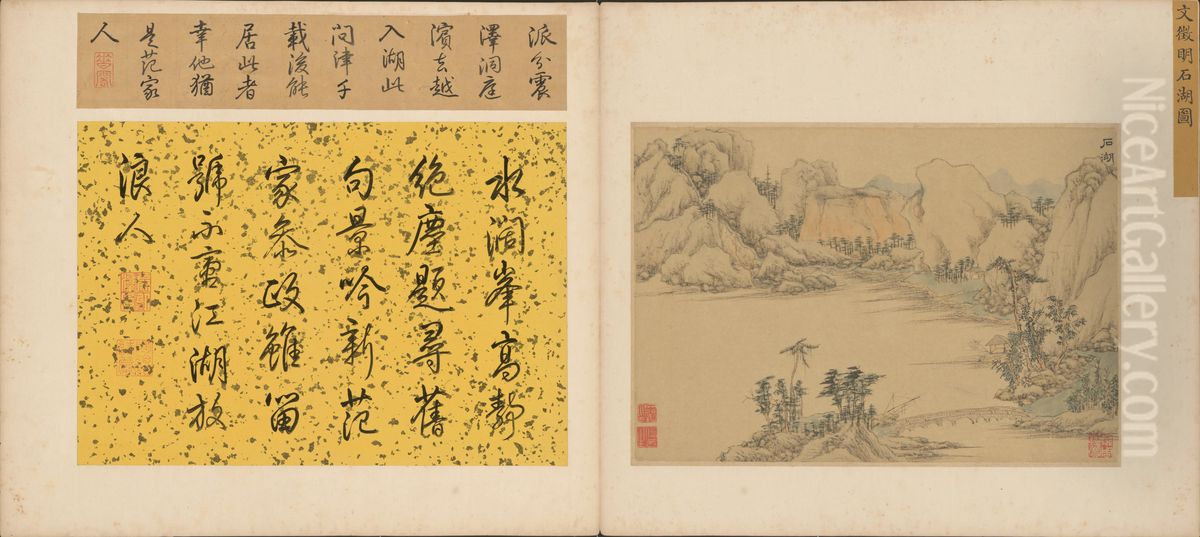 文徵明石湖圖
石湖
派分震
澤洞庭
濱去越
入湖此
問津千
載後能
居此者
幸他猶
是范家
人
水闊峯高靜
絕塵題尋舊
句景吟新范
家參政雖留
號不重江湖放
浪人
NiceArtGallery.com